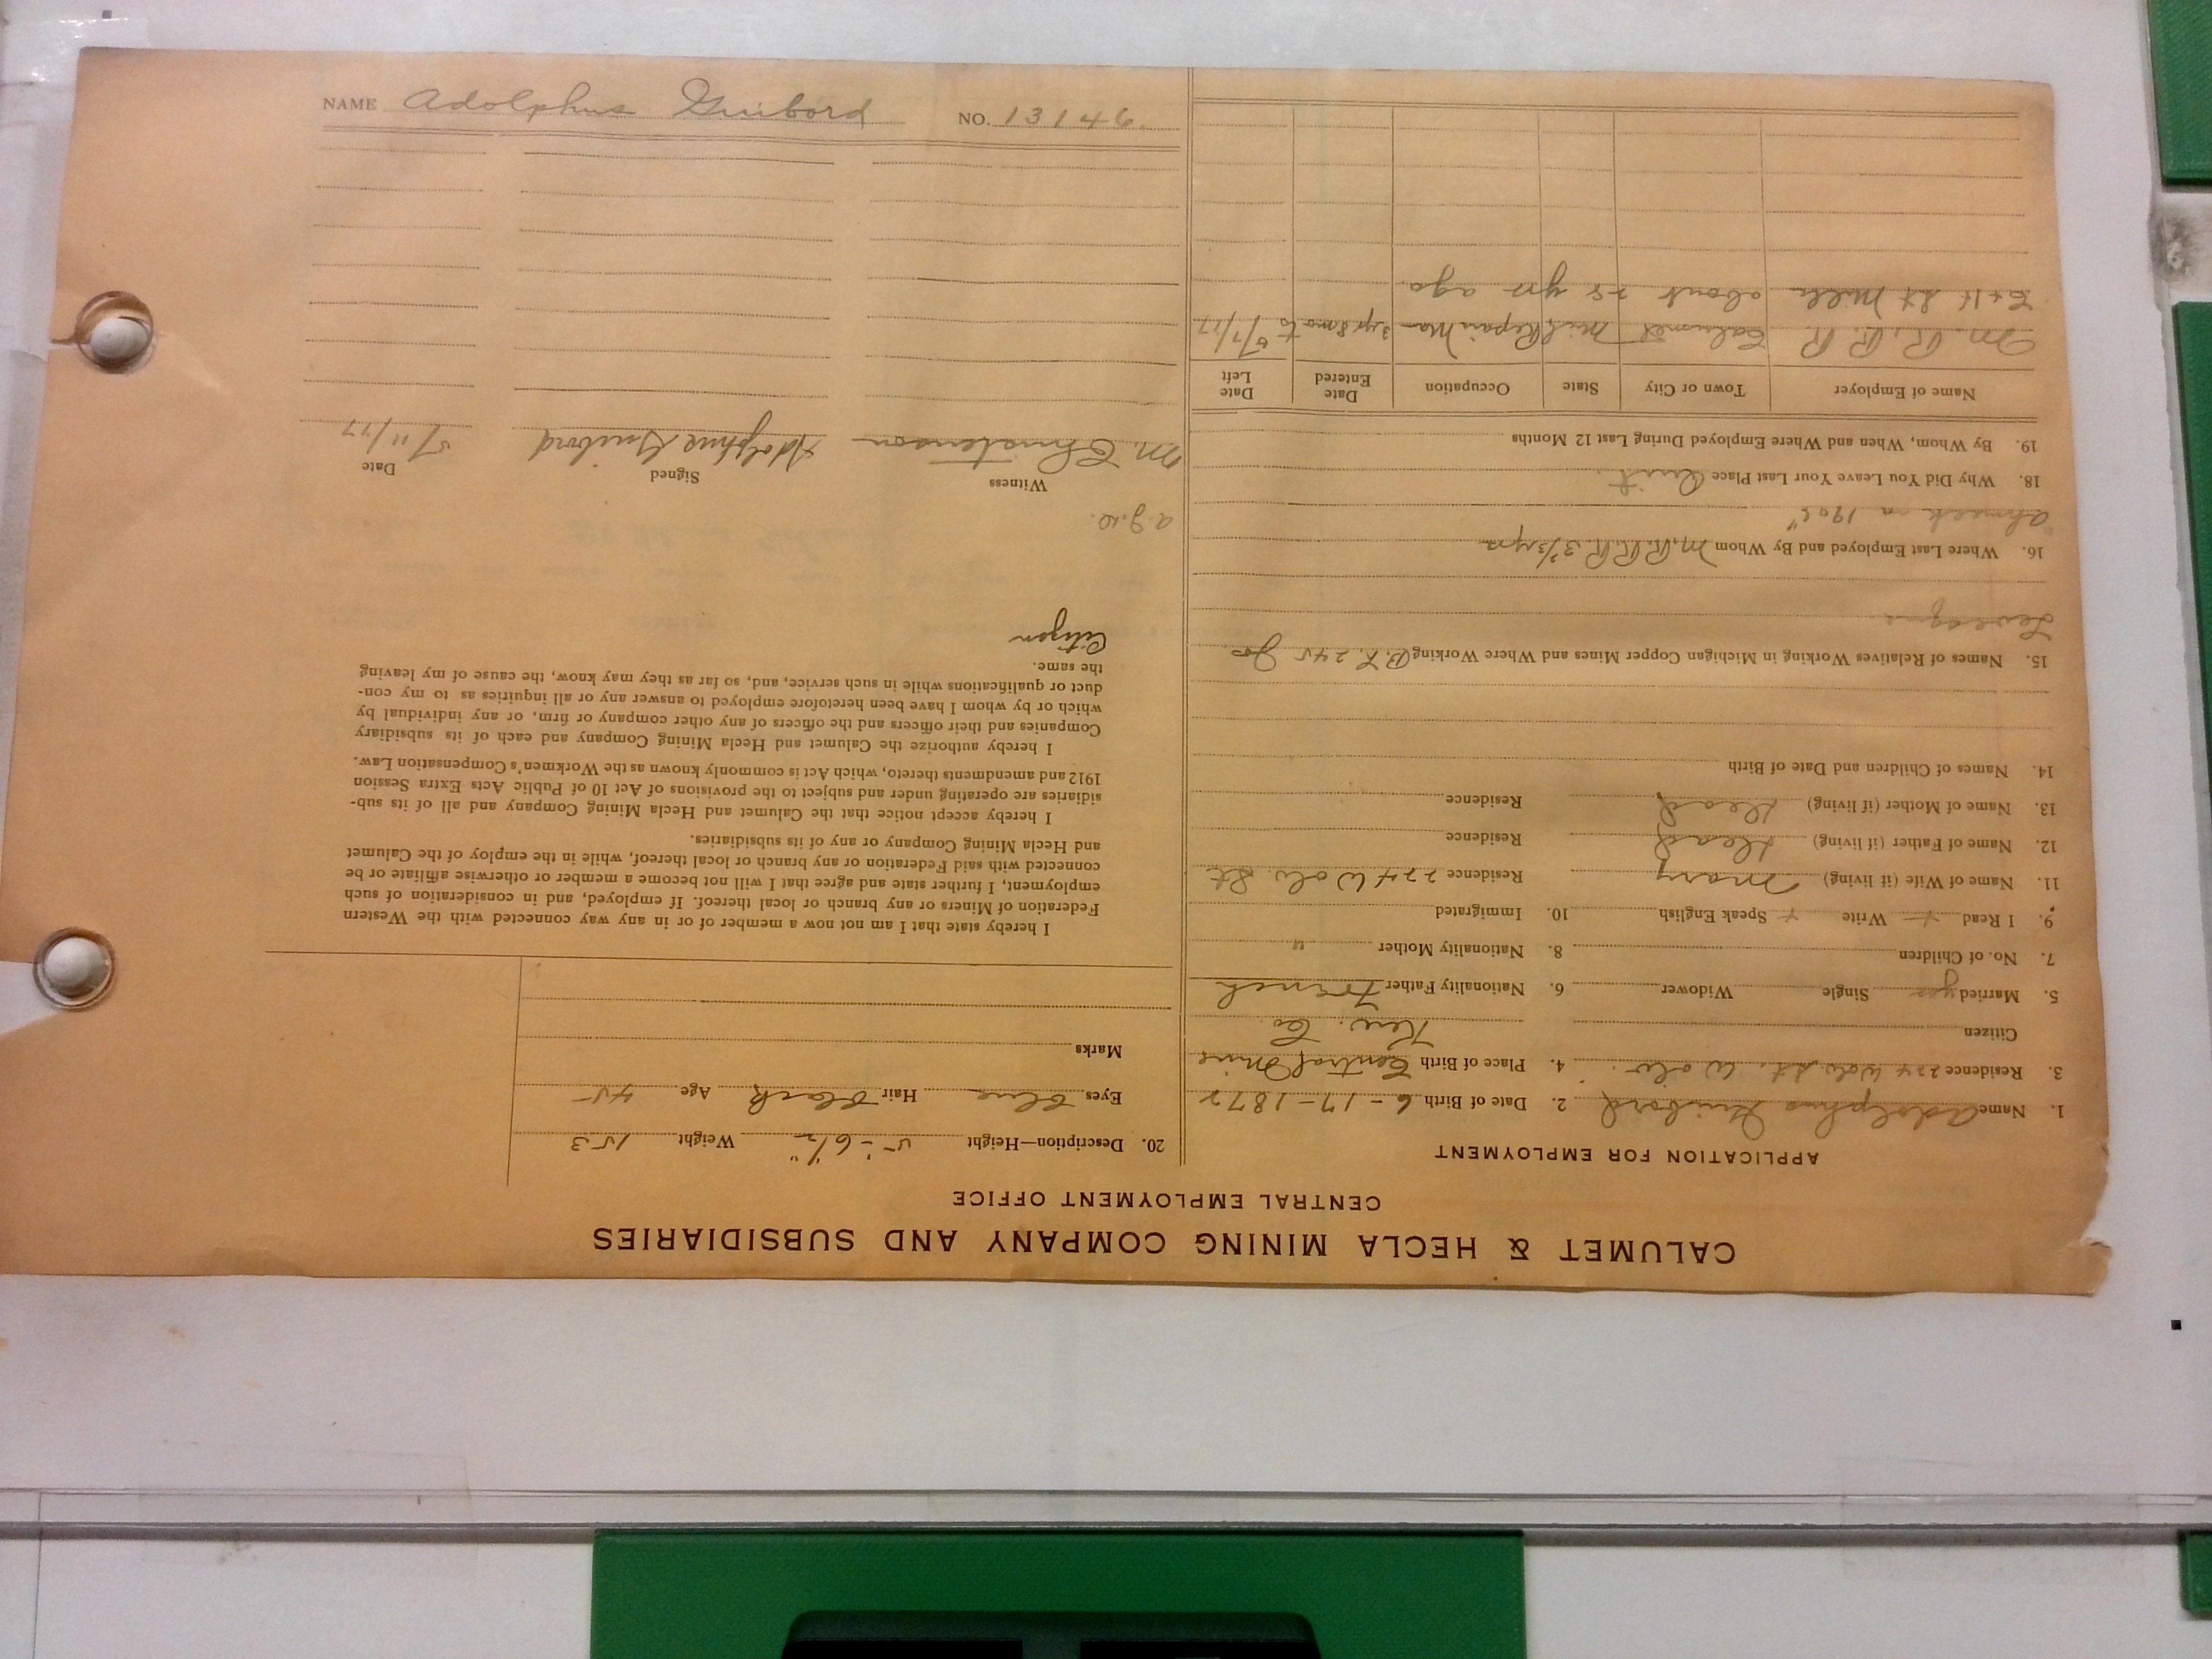 NAME Adolphus Guibord NO. 13146.
CALUMET & HECLA MINING COMPANY AND SUBSIDIARIES
CENTRAL EMPLOYMENT OFFICE
APPLICATION FOR EMPLOYMENT
1. Name Adolphus Guibord 2. Date of Birth 6-17-1872
3. Residence 224 Wolv. St. Wolv. 4. Place of Birth Central Mine
Citizen Kew. Co.
5. Married yes Single Widower 6. Nationality Father French
7. No. of Children 8. Nationality Mother "
9. I Read + Write + Speak English 10. Immigrated
11. Name of Wife (if living) Mary Residence 224 Wolv. St
12. Name of Father (if living) Dead Residence
13. Name of Mother (if living) Dead Residence
14. Names of Children and Date of Birth
15. Names of Relatives Working in Michigan Copper Mines and Where Working B.L. 245 Jos
Levesque
16. Where Last Employed and By Whom M.R.R.R. 3 2/3 yrs
Ahmeek in 1905
18. Why Did You Leave Your Last Place Quit.
19. By Whom, When and Where Employed During Last 12 Months
Name of Employer Town or City State Occupation Date Entered Date Left
M.R.R.R. Calumet Mich Repair Man 3 yr 8 mo to 5/7/17
C & H St Mill about 25 yrs ago
20. Description—Height 5'-6 1/2" Weight 153
Eyes blue Hair black Age 45
Marks
I hereby state that I am not now a member of or in any way connected with the Western
Federation of Miners or any branch or local thereof. If employed, and in consideration of such
employment, I further state and agree that I will not become a member or otherwise affiliate or be
connected with said Federation or any branch or local thereof, while in the employ of the Calumet
and Hecla Mining Company or any of its subsidiaries.
I hereby accept notice that the Calumet and Hecla Mining Company and all of its sub-
sidiaries are operating under and subject to the provisions of Act 10 of Public Acts Extra Session
1912 and amendments thereto, which Act is commonly known as the Workmen's Compensation Law.
I hereby authorize the Calumet and Hecla Mining Company and each of its subsidiary
Companies and their officers and the officers of any other company or firm, or any individual by
which or by whom I have been heretofore employed to answer any or all inquiries as to my con-
duct or qualifications while in such service, and, so far as they may know, the cause of my leaving
the same.
Citizen
Witness Signed Date
M. Christenson Adolphus Guibord 5/11/17